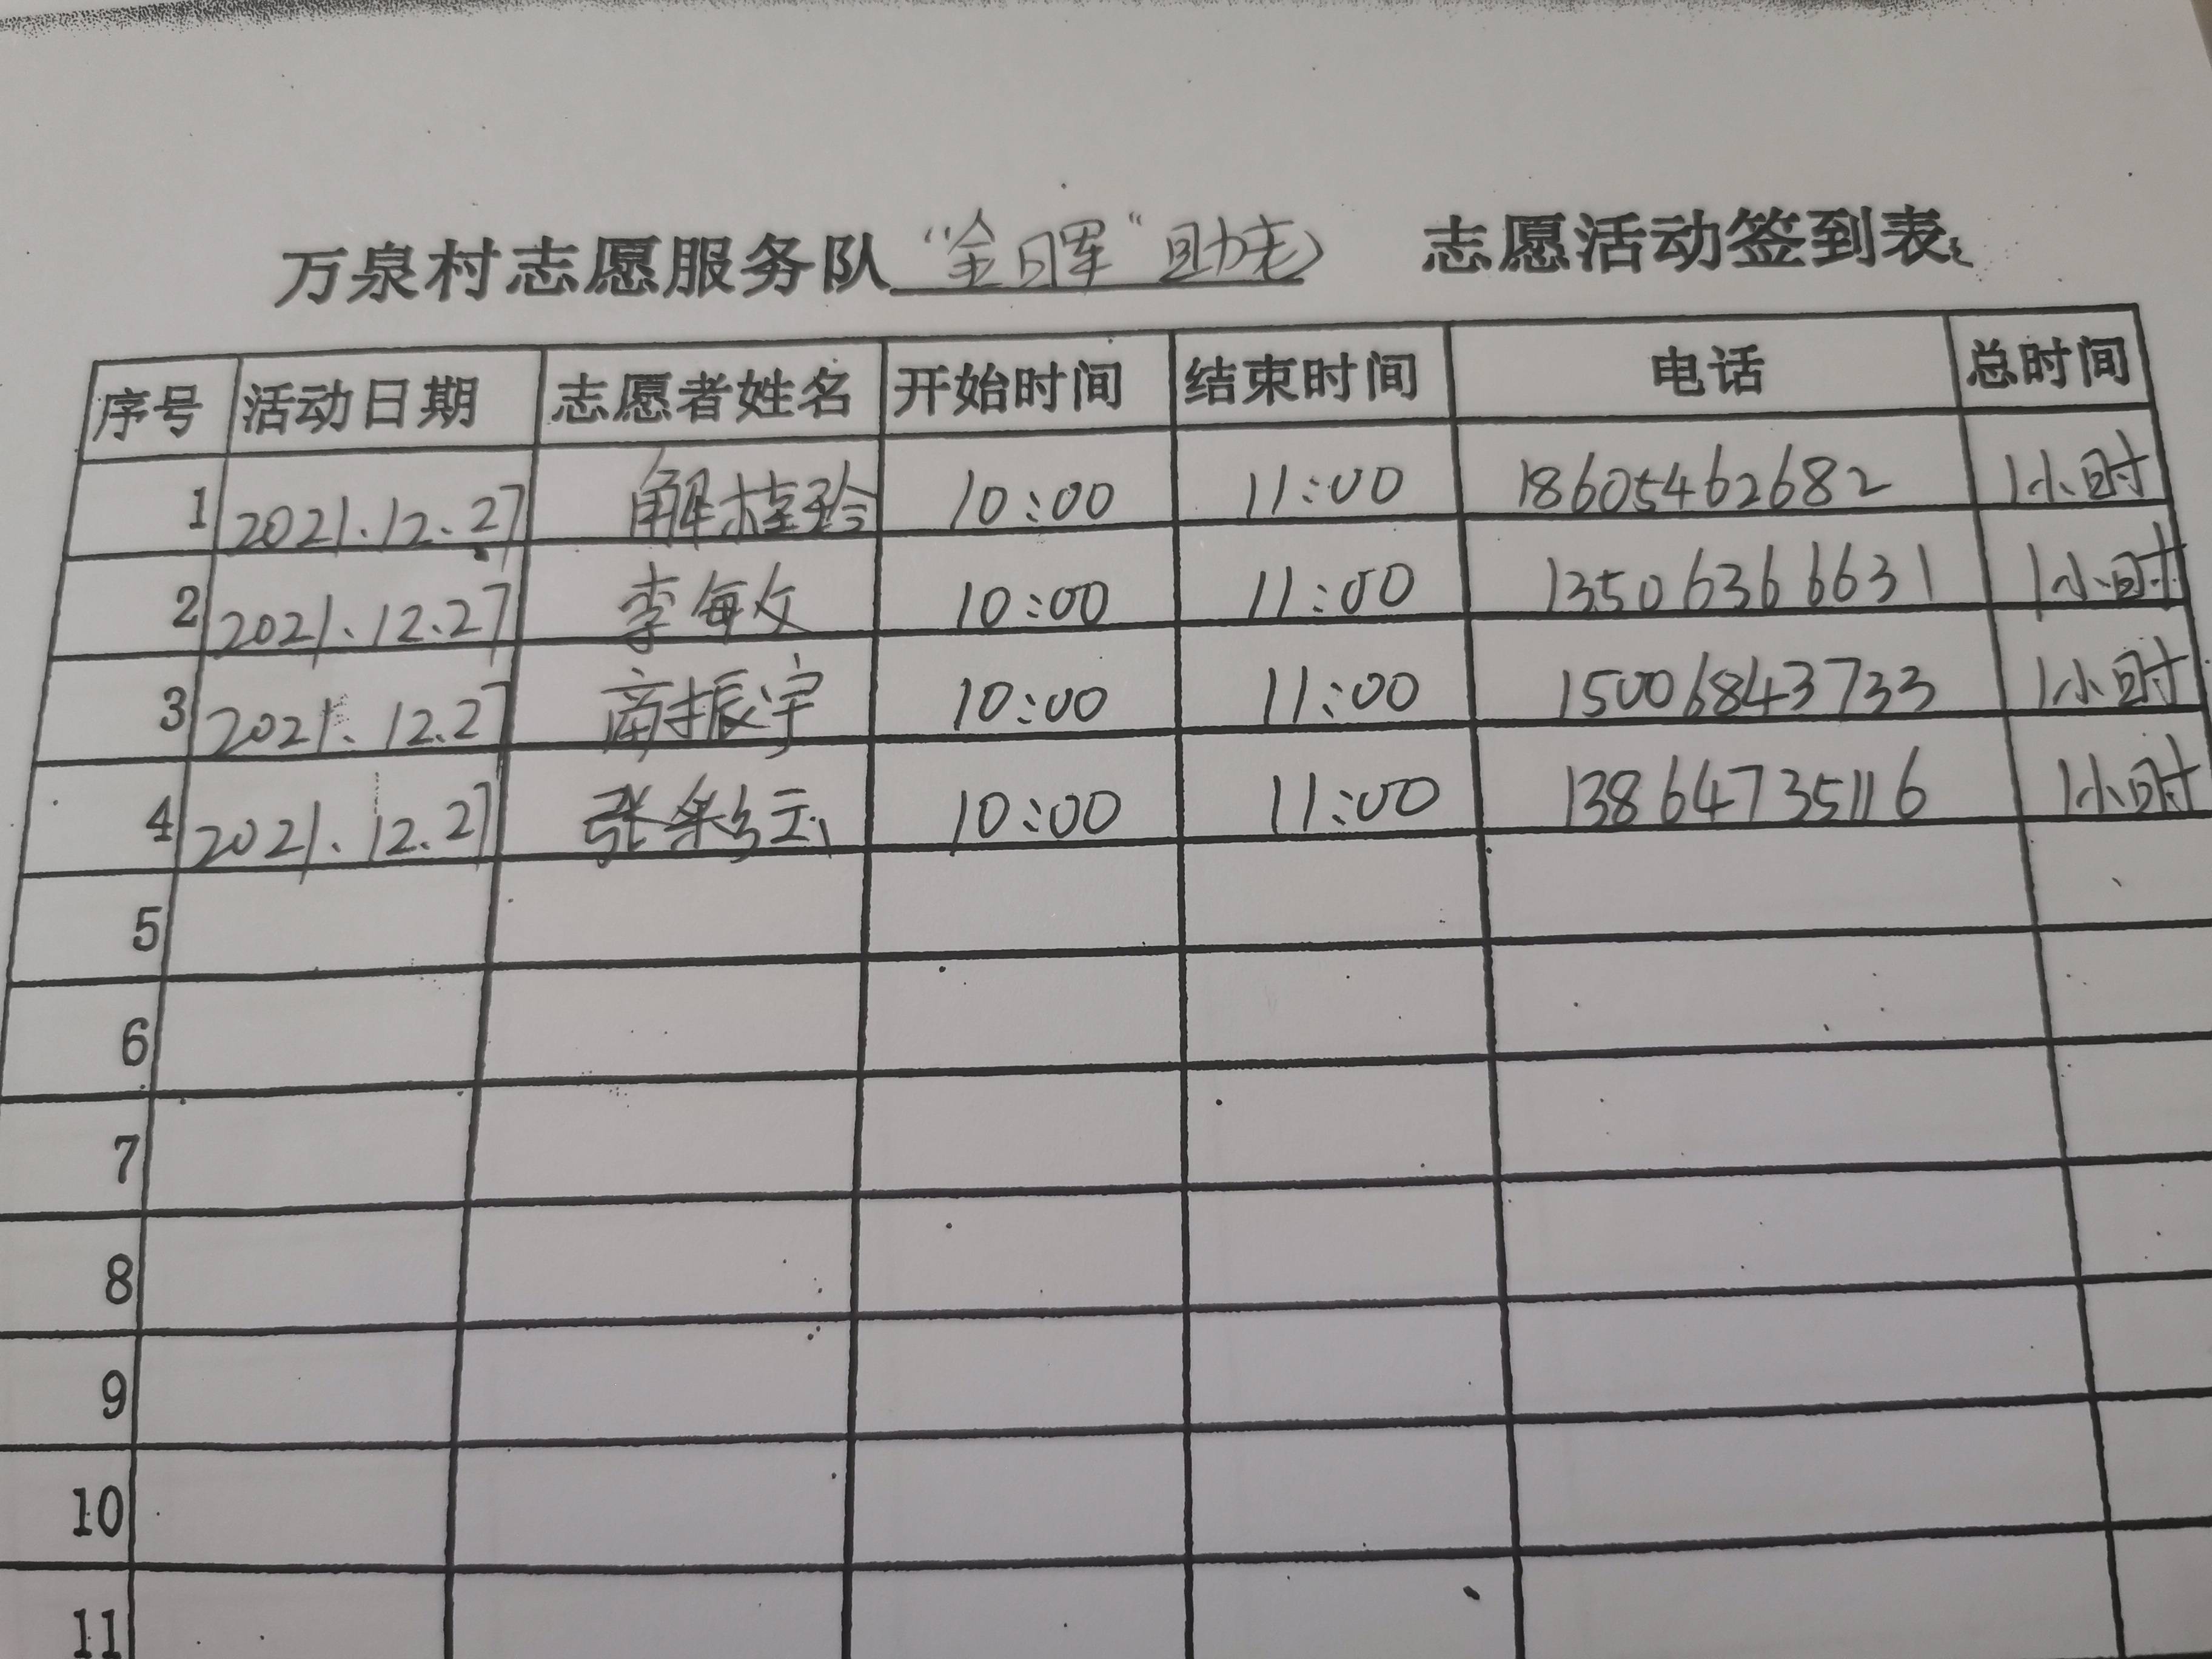 万泉村志愿服务队“金晖”助老 志愿活动签到表
序号 活动日期 志愿者姓名 开始时间 结束时间 电话 总时间
1 2021.12.27 解桂玲 10:00 11:00 18605462682 1小时
2 2021.12.27 李每文 10:00 11:00 13506366631 1小时
3 2021.12.27 商振宇 10:00 11:00 15006843733 1小时
4 2021.12.27 张彩云 10:00 11:00 13864735116 1小时
5
6
7
8
9
10
11